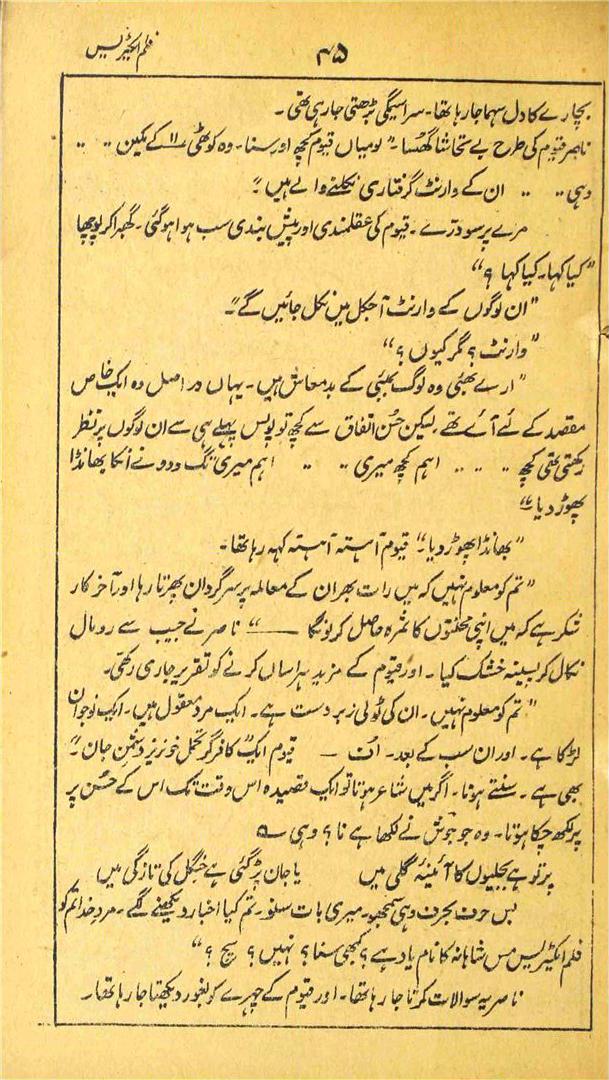 فلم ایکٹریس
۴۵
بچارے کا دل سہما جا رہا تھا۔ سراسیمگی بڑھتی جا رہی تھی۔
ناصر قیوم کی طرح بے تحاشا گھسا۔ "لو میاں قیوم کچھ اور سنا۔ وہ کوٹھی ۱۱ کے مکین ۔۔ ۔۔
وہی ۔۔ ۔۔ ان کے وارنٹ گرفتاری نکلنے والے ہیں"۔
مرے پر سو درّے۔ قیوم کی عقلمندی اور پیش بندی سب ہوا ہو گئی۔ گھبرا کر پوچھا
"کیا کہا۔ کیا کہا ؟"
"ان لوگوں کے وارنٹ آجکل میں نکل جائیں گے"۔
"وارنٹ ؟ مگر کیوں ؟"
"ارے بھئی وہ لوگ بمبئی کے بدمعاش ہیں۔ یہاں در اصل وہ ایک خاص
مقصد کے لئے آئے تھے لیکن حسُن اتفاق سے کچھ تو پولس پہلے ہی سے ان لوگوں پر نظر
رکھتی تھی کچھ ۔۔ ۔۔ ۔۔ اہم کچھ میری ۔۔ ۔۔ ۔۔ اہم میری تگ و دو نے انکا بھانڈا
پھوڑ دیا"
"بھانڈا پھوڑ دیا"۔ قیوم آہستہ آہستہ کہہ رہا تھا۔
"تم کو معلوم نہیں کہ میں رات بھر ان کے معاملہ پر سرگرداں پھرتا رہا اور آخر کار
شکر ہے کہ میں اپنی محنتوں کا ثمرہ حاصل کر لونگا ——" ناصر نے جیب سے رومال
نکال کر پسینہ خشک کیا۔ اور قیوم کے مزید ہراساں کرنے کو تقریر جاری رکھی۔
"تم کو معلوم نہیں۔ ان کی ٹولی زبردست ہے۔ ایک مرد معقول ہیں۔ ایک نوجوان
لڑکا ہے۔ اور ان سب کے بعد۔ اُف — قیوم ایک کافر گر تحمل خونریز دشمن جان"۔
بھی ہے۔ سنتے ہو نا۔ اگر میں شاعر ہوتا تو ایک قصیدہ اس وقت تک اس کے حسُن پر
پر لکھ چکا ہوتا۔ وہ جو جوش نے لکھا ہے نا ؟ وہی ؎
پر تو ہے بجلیوں کا آئینۂ گلی میں یا جان پڑ گئی ہے جنگل کی تازگی میں
بس حرف بحرف وہی سمجھو۔ میری بات سنو۔ تم کیا اخبار دیکھنے لگے۔ مرد خدا تم کو
فلم ایکٹریس مس شاہانہ کا نام یاد ہے ؟ کبھی سنا ؟ نہیں ؟ سچ ؟"
ناصر یہ سوالات کرتا جا رہا تھا۔ اور قیوم کے چہرے کو بغور دیکھتا جا رہا تھا۔